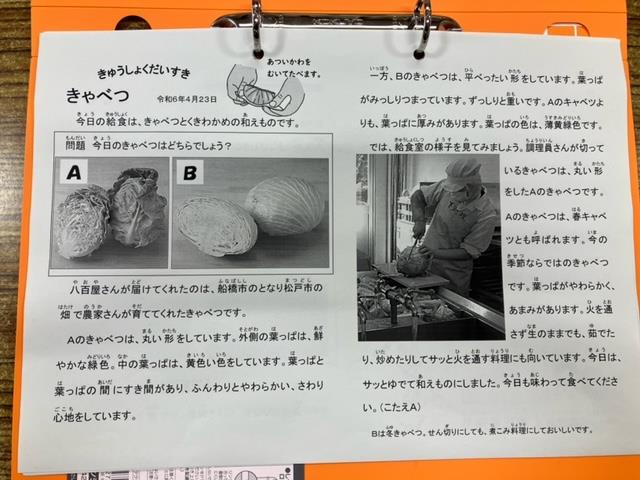 きゅうしょくだいすき
あついかわを
むいてたべます。
きゃべつ 令和6年4月23日
今日の給食は、きゃべつとくきわかめの和えものです。
問題 今日のきゃべつはどちらでしょう?
A
B
八百屋さんが届けてくれたのは、船橋市のとなり松戸市の
畑で農家さんが育ててくれたきゃべつです。
Aのきゃべつは、丸い形をしています。外側の葉っぱは、鮮
やかな緑色。中の葉っぱは、黄色い色をしています。葉っぱと
葉っぱの間にすき間があり、ふんわりとやわらかい、さわり
心地をしています。
一方、Bのきゃべつは、平べったい形をしています。葉っぱ
がみっしりつまっています。ずっしりと重いです。Aのキャベツよ
りも、葉っぱに厚みがあります。葉っぱの色は、薄黄緑色です。
では、給食室の様子を見てみましょう。調理員さんが切って
いるきゃべつは、丸い形
をしたAのきゃべつです。
Aのきゃべつは、春キャベ
ツとも呼ばれます。今の
季節ならではのきゃべつ
です。葉っぱがやわらかく、
あまみがあります。火を通
さず生のままでも、茹でた
り、炒めたりしてサッと火を通す料理にも向いています。今日は、
サッとゆでて和えものにしました。今日も味わって食べてくださ
い。(こたえA)
Bは冬きゃべつ。せん切りにしても、煮こみ料理にしておいしいです。